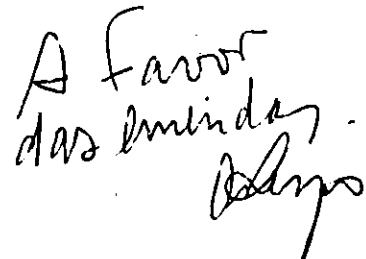 A Favor
das emendas.